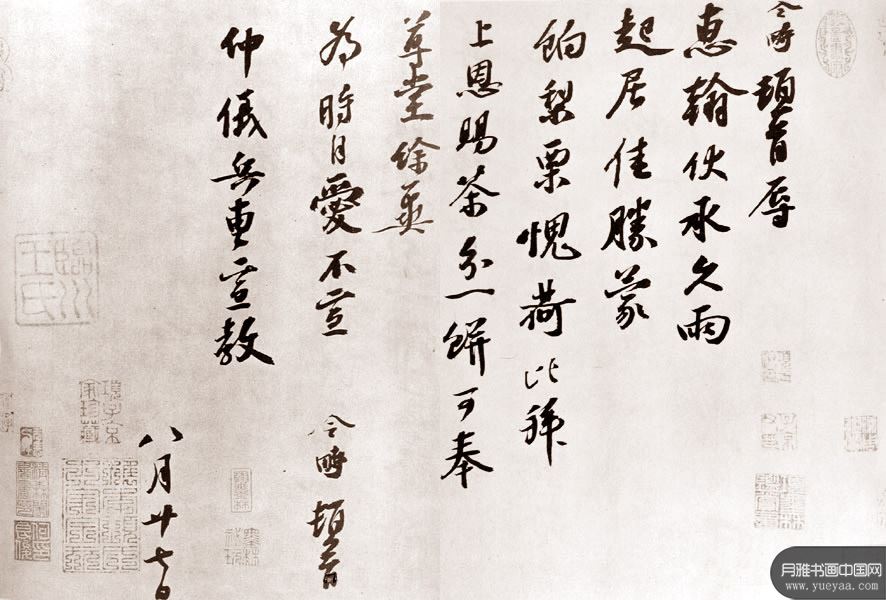 令畤頓首辱
惠翰伏承久雨
起居佳勝蒙
餉梨栗愧荷比拜
上恩賜茶分一餅可奉
尊堂餘並
為時自愛不宣 令畤頓首
仲儀兵曹宣教
八月廿七日
臨川王氏
項子京家珍藏
月雅书画中国网
www.yueyaa.com